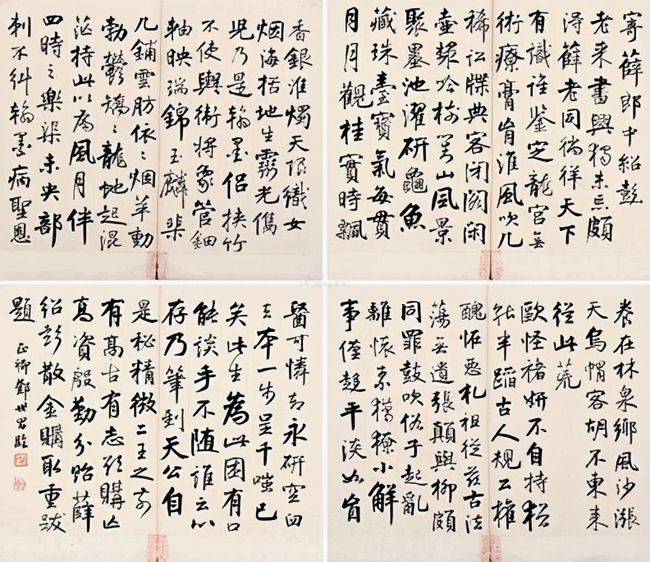 寄薛郎中紹彭
老來書興獨未忘頗
得薛老同徜徉天下
有識誰鑒定龍宮無
術療膏肓淮風吹几
稀訟牒典客閉閤閑
壺吟樹山風景
聚墨池濯研龜魚
藏珠臺寶氣每貫
月月觀桂實時飄
香銀淮燭天限織女
烟海括地生靈光儁
兒乃是翰墨侶挾竹
不使輿衛將象管鈿
軸映瑞錦玉麟棐
几鋪雲肪依依烟華動
勃鬱矯矯龍蛇起混
茫持此以為風月伴
四時之樂渠未央部
刺不糾翰墨病聖恩
養在林泉鄉風沙漲
天烏帽客胡不東來
從此荒
歐怪褚妍不自持猶
能半蹈古人規公權
醜怪惡札祖從茲古法
蕩無遺張顛與柳頗
同罪鼓吹俗子起亂
離懷素獦獠小解
事僅趨平淡如盲
醫可憐智永研空臼
去本一步呈千嗤已
矣此生為此困有口
能談手不隨誰云心
存乃筆到天公自
是秘精微二王之前
有高古有志欲購亡
高資殷勤分貽薛
紹彭散金購取重跋
題
正卿鄭世昌臨